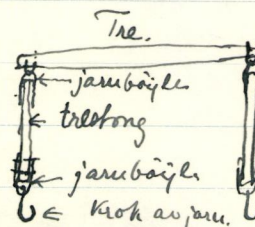 Tre.
jarnbøyle
trestong
jarnbøyle
Krok av jarn.